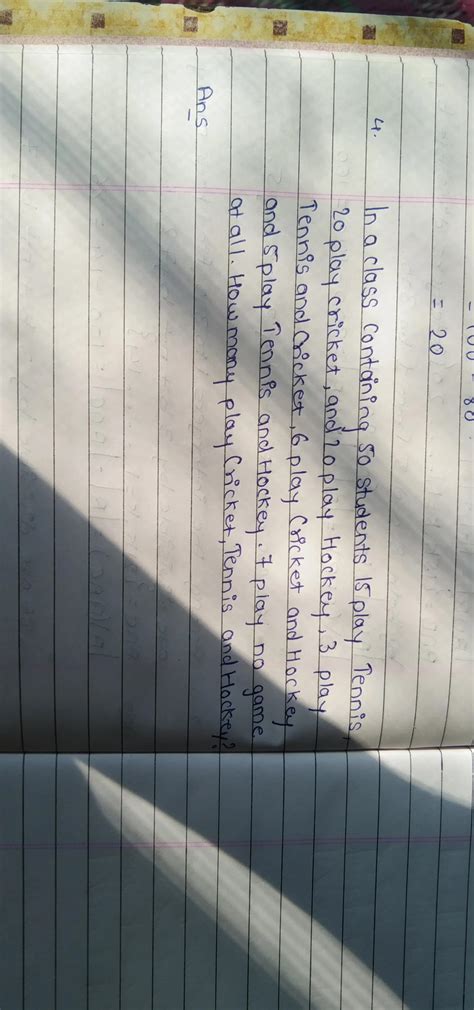 = 20
4. In a class containing 50 students 15 play Tennis,
20 play cricket, and 20 play Hockey, 3 play
Tennis and Cricket, 6 play Cricket and Hockey
and 5 play Tennis and Hockey. 7 play no game
at all. How many play Cricket, Tennis and Hockey?
Ans